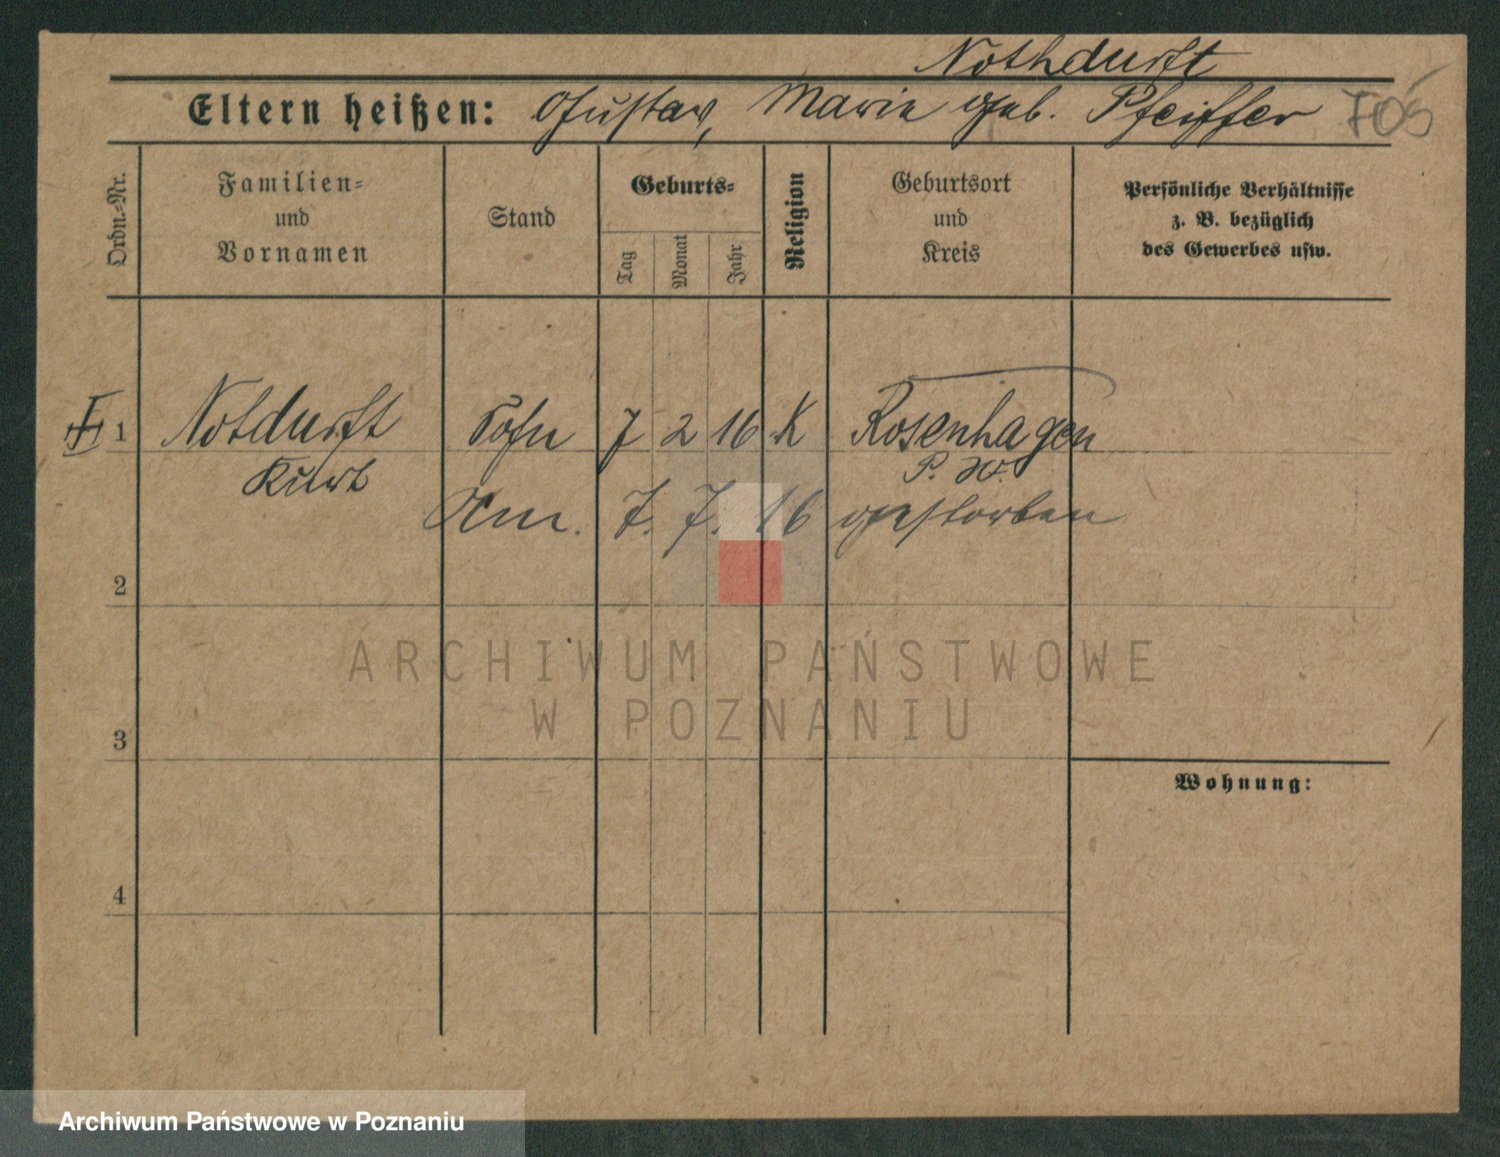 Nothdurft
Eltern heißen: Gustav, Marie geb. Pfeiffer 705
Ordn.-Nr.
Familien-
und
Vornamen
Stand
Geburts-
Tag
Monat
Jahr
Religion
Geburtsort
und
Kreis
Persönliche Verhältnisse
z. B. bezüglich
des Gewerbes usw.
1 Notdurft Sohn 7 2 16 K Rosenhagen
Kurt P. W.
Am. 7. 7. 16 gestorben
2
ARCHIWUM PAŃSTWOWE
W POZNANIU
3
Wohnung:
4
Archiwum Państwowe w Poznaniu